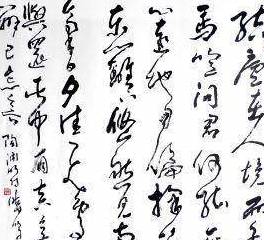 結廬在人境而
馬喧問君何能
心遠地自偏採
東籬下悠然見南
氣日夕佳飛鳥
與還此中有真意
辨已忘言 陶淵明詩